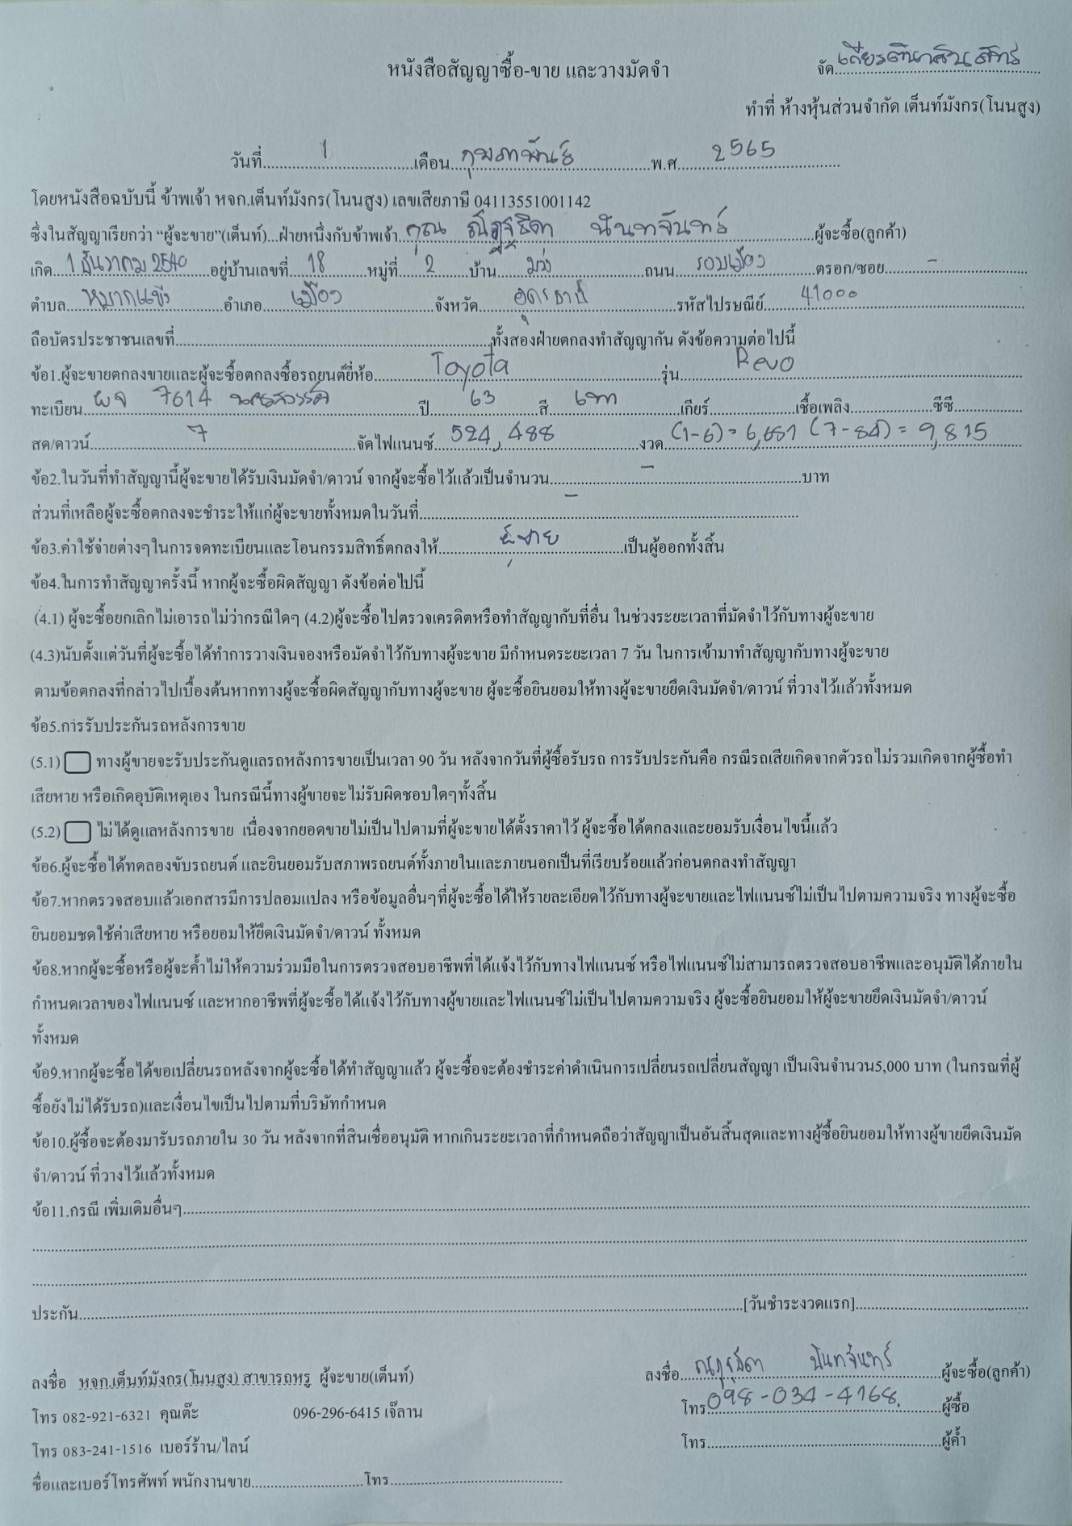 หนังสือสัญญาซื้อ-ขาย และวางมัดจำ
จัด
ทำที่ ห้างหุ้นส่วนจำกัด เต็นท์มังกร(โนนสูง)
วันที่ 1 เดือน กุมภาพันธ์ พ.ศ. 2565
โดยหนังสือฉบับนี้ ข้าพเจ้า หจก.เต็นท์มังกร(โนนสูง) เลขเสียภาษี 04113551001142
ซึ่งในสัญญาเรียกว่า “ผู้จะขาย”(เต็นท์)...ฝ่ายหนึ่งกับข้าพเจ้า คุณ ณัฏฐธิดา นันทจันทร์ ผู้จะซื้อ(ลูกค้า)
เกิด 1 ธันวาคม 2540 อยู่บ้านเลขที่ 18 หมู่ที่ 2 บ้าน ม่วง ถนน รอบเมือง ตรอก/ซอย -
ตำบล หมากแข้ง อำเภอ เมือง จังหวัด อุดรธานี รหัสไปรษณีย์ 41000
ถือบัตรประชาชนเลขที่ ทั้งสองฝ่ายตกลงทำสัญญากัน ดังข้อความต่อไปนี้
ข้อ1.ผู้จะขายตกลงขายและผู้จะซื้อตกลงซื้อรถยนต์ยี่ห้อ Toyota รุ่น Revo
ทะเบียน ผจ 7614 นครสวรรค์ ปี 63 สี เทา เกียร์ เชื้อเพลิง ซีซี
สด/ดาวน์ 7 จัดไฟแนนซ์ 524,488 งวด (1-6) = 6,651 (7-84) = 9,815
ข้อ2.ในวันที่ทำสัญญานี้ผู้จะขายได้รับเงินมัดจำ/ดาวน์ จากผู้จะซื้อไว้แล้วเป็นจำนวน - บาท
ส่วนที่เหลือผู้จะซื้อตกลงจะชำระให้แก่ผู้จะขายทั้งหมดในวันที่ -
ข้อ3.ค่าใช้จ่ายต่างๆในการจดทะเบียนและโอนกรรมสิทธิ์ตกลงให้ ผู้ขาย เป็นผู้ออกทั้งสิ้น
ข้อ4.ในการทำสัญญาครั้งนี้ หากผู้จะซื้อผิดสัญญา ดังข้อต่อไปนี้
(4.1) ผู้จะซื้อยกเลิกไม่เอารถไม่ว่ากรณีใดๆ (4.2)ผู้จะซื้อไปตรวจเครดิตหรือทำสัญญากับที่อื่น ในช่วงระยะเวลาที่มัดจำไว้กับทางผู้จะขาย
(4.3)นับตั้งแต่วันที่ผู้จะซื้อได้ทำการวางเงินจองหรือมัดจำไว้กับทางผู้จะขาย มีกำหนดระยะเวลา 7 วัน ในการเข้ามาทำสัญญากับทางผู้จะขาย
ตามข้อตกลงที่กล่าวไปเบื้องต้นหากทางผู้จะซื้อผิดสัญญากับทางผู้จะขาย ผู้จะซื้อยินยอมให้ทางผู้จะขายยึดเงินมัดจำ/ดาวน์ ที่วางไว้แล้วทั้งหมด
ข้อ5.การรับประกันรถหลังการขาย
(5.1) ทางผู้ขายจะรับประกันดูแลรถหลังการขายเป็นเวลา 90 วัน หลังจากวันที่ผู้ซื้อรับรถ การรับประกันคือ กรณีรถเสียเกิดจากตัวรถไม่รวมเกิดจากผู้ซื้อทำ
เสียหาย หรือเกิดอุบัติเหตุเอง ในกรณีนี้ทางผู้ขายจะไม่รับผิดชอบใดๆทั้งสิ้น
(5.2) ไม่ได้ดูแลหลังการขาย เนื่องจากยอดขายไม่เป็นไปตามที่ผู้จะขายได้ตั้งราคาไว้ ผู้จะซื้อได้ตกลงและยอมรับเงื่อนไขนี้แล้ว
ข้อ6.ผู้จะซื้อได้ทดลองขับรถยนต์ และยินยอมรับสภาพรถยนต์ทั้งภายในและภายนอกเป็นที่เรียบร้อยแล้วก่อนตกลงทำสัญญา
ข้อ7.หากตรวจสอบแล้วเอกสารมีการปลอมแปลง หรือข้อมูลอื่นๆที่ผู้จะซื้อได้ให้รายละเอียดไว้กับทางผู้จะขายและไฟแนนซ์ไม่เป็นไปตามความจริง ทางผู้จะซื้อ
ยินยอมชดใช้ค่าเสียหาย หรือยอมให้ยึดเงินมัดจำ/ดาวน์ ทั้งหมด
ข้อ8.หากผู้จะซื้อหรือผู้จะค้ำไม่ให้ความร่วมมือในการตรวจสอบอาชีพที่ได้แจ้งไว้กับทางไฟแนนซ์ หรือไฟแนนซ์ไม่สามารถตรวจสอบอาชีพและอนุมัติได้ภายใน
กำหนดเวลาของไฟแนนซ์ และหากอาชีพที่ผู้จะซื้อได้แจ้งไว้กับทางผู้ขายและไฟแนนซ์ไม่เป็นไปตามความจริง ผู้จะซื้อยินยอมให้ผู้จะขายยึดเงินมัดจำ/ดาวน์
ทั้งหมด
ข้อ9.หากผู้จะซื้อได้ขอเปลี่ยนรถหลังจากผู้จะซื้อได้ทำสัญญาแล้ว ผู้จะซื้อจะต้องชำระค่าดำเนินการเปลี่ยนรถเปลี่ยนสัญญา เป็นเงินจำนวน5,000 บาท (ในกรณที่ผู้
ซื้อยังไม่ได้รับรถ)และเงื่อนไขเป็นไปตามที่บริษัทกำหนด
ข้อ10.ผู้ซื้อจะต้องมารับรถภายใน 30 วัน หลังจากที่สินเชื่ออนุมัติ หากเกินระยะเวลาที่กำหนดถือว่าสัญญาเป็นอันสิ้นสุดและทางผู้ซื้อยินยอมให้ทางผู้ขายยึดเงินมัด
จำ/ดาวน์ ที่วางไว้แล้วทั้งหมด
ข้อ11.กรณี เพิ่มเติมอื่นๆ
ประกัน [วันชำระงวดแรก]
ลงชื่อ หจก.เต็นท์มังกร(โนนสูง) สาขารถหรู ผู้จะขาย(เต็นท์) ลงชื่อ ณัฏฐธิดา นันทจันทร์ ผู้จะซื้อ(ลูกค้า)
โทร 082-921-6321 คุณต๊ะ 096-296-6415 เจ๊ลาน โทร 098-034-4168 ผู้ซื้อ
โทร 083-241-1516 เบอร์ร้าน/ไลน์ โทร ผู้ค้ำ
ชื่อและเบอร์โทรศัพท์ พนักงานขาย โทร